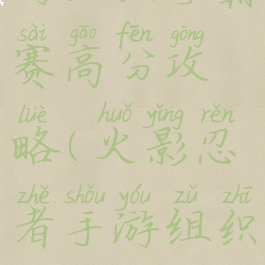 sài gāo fēn gōng
赛高分攻
lüè huǒ yǐng rěn
略(火影忍
zhě shǒu yóu zǔ zhī
者手游组织